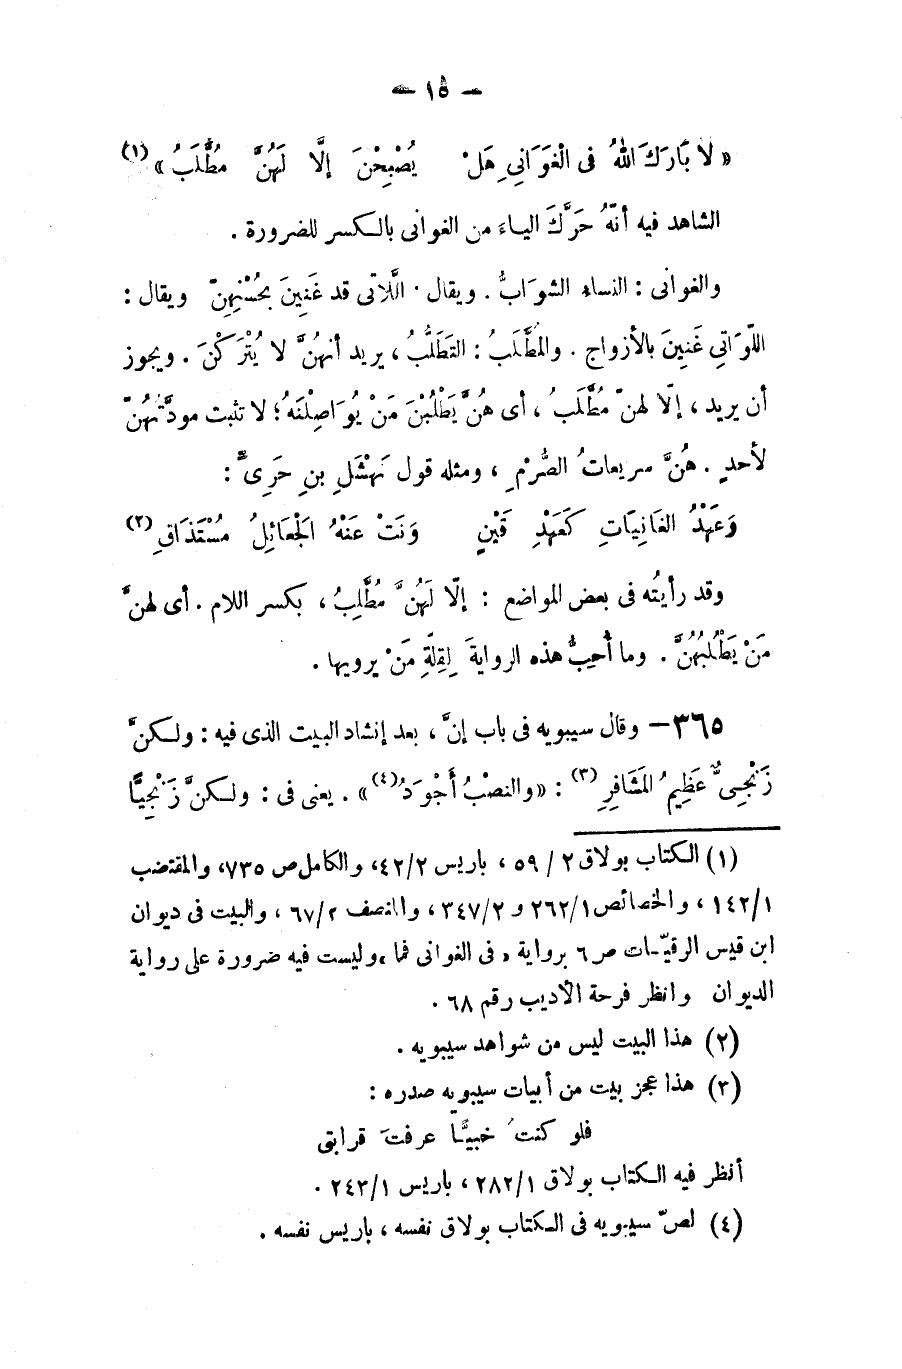 — ١٥ —
« لَا بَارَكَ اللهُ فى الْغَوَانِىِ هَلْ يُصْبِحْنَ إلَّا لَهُنَّ مُطَّلَبُ » (١)
الشاهد فيه أنّهُ حَرَّكَ الياءَ من الغوانى بالكسر للضرورة .
والغوانى : النساء الشوَابُّ . ويقال . اللَّاتى قد غَنِينَ بحُسْنِهِنّ ويقال :
اللّوَاتِى غَنِينَ بالأزواج . والمُطَّلَبُ : التَطَلُّبُ ، يريد أنهُنَّ لا يُتْرَكْنَ . ويجوز
أن يريد ، إلّا لهنّ مُطَّلَبُ ، أى هُنَّ يَطْلُبْنَ مَنْ يُوَاصِلْنَهُ ؛ لا تثبت مودَّتُهُنّ
لأحدٍ . هُنَّ سريعاتُ الصُّرْمِ ، ومثله قول نَهْشَلِ بنِ حَرِىٍّ :
وَعَهْدُ الغَانِيَاتِ كَعَهْدِ قَيْنٍ وَنَتْ عَنْهُ الجَعَائِلُ مُسْتَذَاقِ (٢)
وقد رأيتُه فى بعض المواضع : إلّا لَهُنَّ مُطَّلِبُ ، بكسر اللام . أى لهنَّ
مَنْ يَطْلُبُهُنَّ . وما أُحِبُّ هذه الروايةَ لِقِلّةِ مَنْ يرويها .
٣٦٥ — وقال سيبويه فى باب إنَّ ، بعد إنشاد البيت الذى فيه : ولكنَّ
زَنْجِىٌّ عَظِيمُ المَشَافِرِ (٣) : « والنصْبُ أَجْوَدُ (٤) » . يعنى فى : ولكنَّ زَنْجِيًّا
(١) الكتاب بولاق ٢ / ٥٩ ، باريس ٤٢/٢، والكامل ص ٧٣٥، والمقتضب
١٤٢/١ ، والخصائص ٢٦٢/١ و ٣٤٧/٢ ، والمنصف ٦٧/٢ ، والبيت فى ديوان
ابن قيس الرقيّات ص ٦ برواية « فى الغوانى فما » وليست فيه ضرورة على رواية
الديوان وانظر فرحة الأديب رقم ٦٨ .
(٢) هذا البيت ليس من شواهد سيبويه .
(٣) هذا عجز بيت من أبيات سيبويه صدره :
فلو كنتُ ضبيًّا عرفتَ قرابتى
أنظر فيه الكتاب بولاق ٢٨٢/١ ، باريس ٢٤٣/١ .
(٤) لصّ سيبويه فى الكتاب بولاق نفسه ، باريس نفسه .